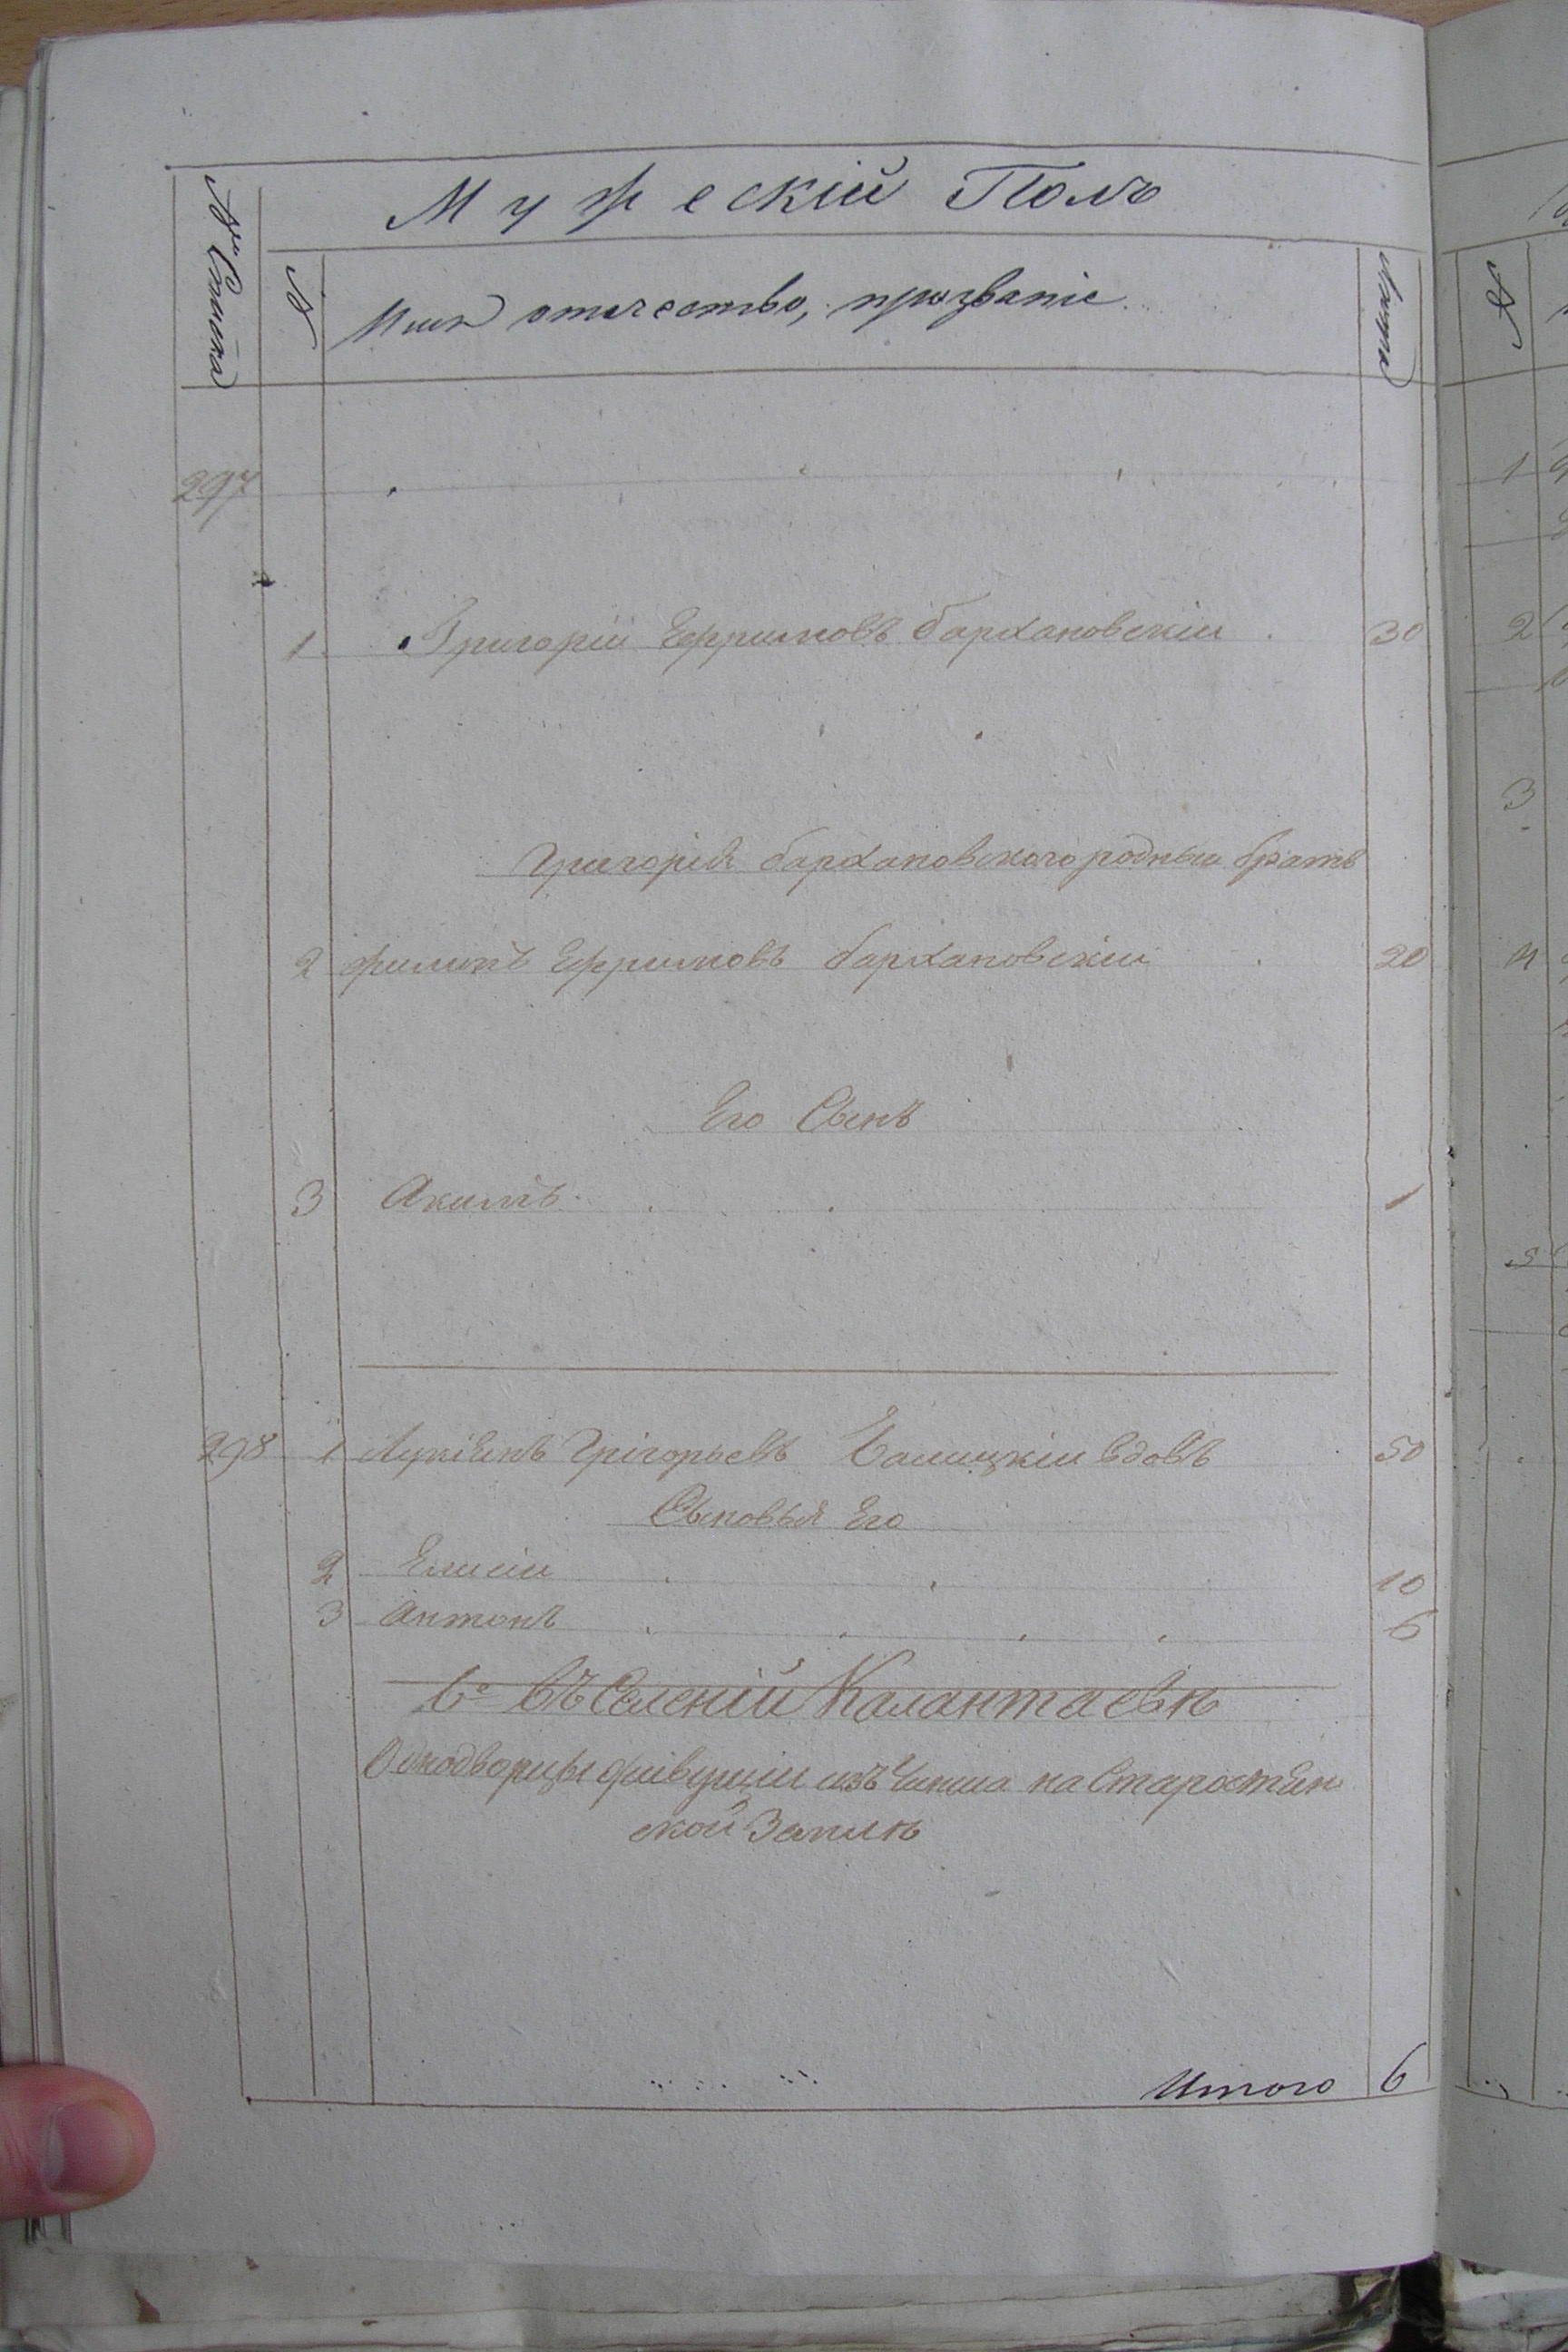 Мужескій Полъ
№ Списка
№
Имя отечество, прозваніе
Лѣта
297
1. Григорій Ефримовъ Бархановскіи 30
Григорія бархановского родныи братъ
2 Филипъ Ефримовъ бархановскіи 20
Его Сынъ
3 Акимъ 1
298 1 Лукіянъ Грігорьевъ Галицкіи вдовъ 50
Сыновья Его
2 Елисіи 10
3 Антонъ 6
6е въ Селеніи Калантаевкѣ
Однодворцы живущіи изъ Чинша на Старостян
ской Землѣ
Итого 6
1
2
3
4
5